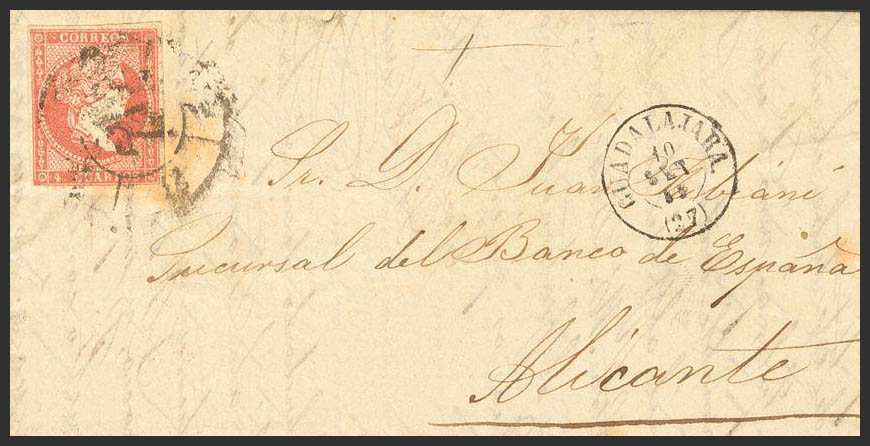 CORREO
4 CUAR
GUADALAJARA.
10
SET
(27)
Sr. D. Juan
Sucursal del Banco de España
Alicante